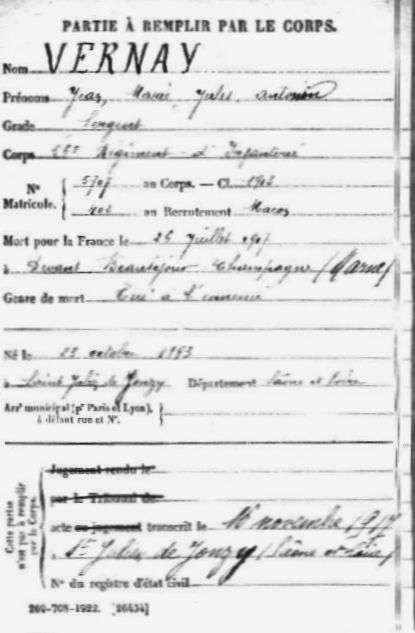 PARTIE À REMPLIR PAR LE CORPS.
Nom VERNAY
Prénoms Jean, Marie, Jules, Antonin
Grade Sergent
Corps Régiment d'Infanterie
N° Matricule. { 5707 au Corps. — Cl. 1903
au Recrutement Macon
Mort pour la France le 25 Juillet
à Devant Beauséjour Champagne (Marne)
Genre de mort Tué à l'ennemi
Né le 25 octobre
à Saint Julien de Jonzy Département Saône et Loire
Arr<sup>t</sup> municipal (p<sup>r</sup> Paris et Lyon),
à défaut rue et N°.
Cette partie n'est pas à remplir par le Corps.
Jugement rendu le
par le Tribunal de
acte ou jugement transcrit le 16 novembre 1917
St Julien de Jonzy (Saône et Loire)
N° du registre d'état civil
260-708-1922. [26434]